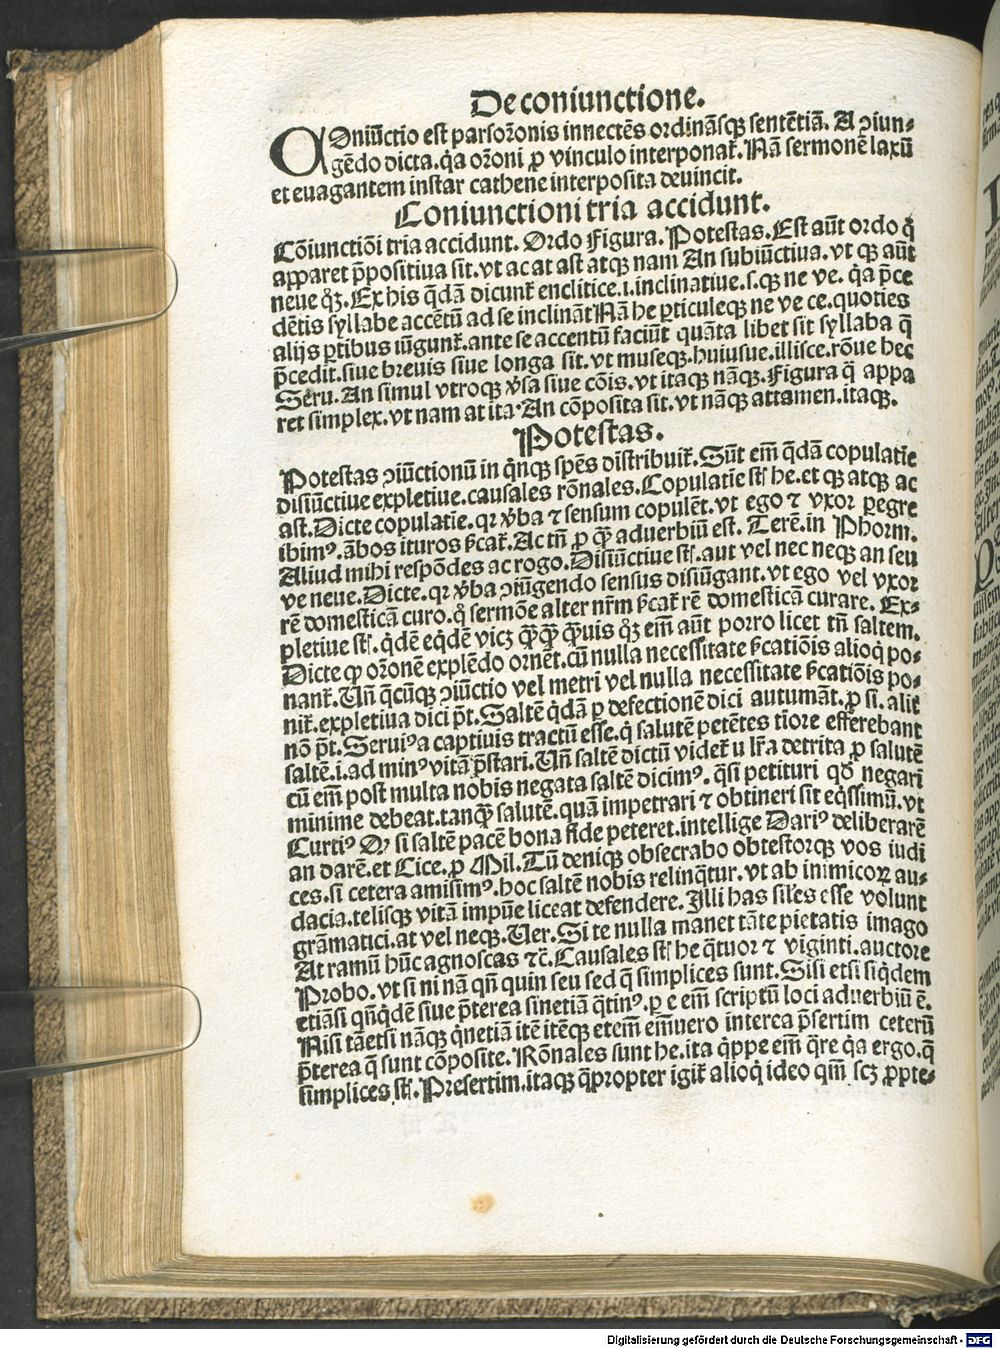 De coniunctione.
COniūctio est pars orōnis innectēs ordinās sentētiā. A ↄiun-
gēdo dicta. q̇a orōni ꝓ vinculo interponat̄. Nā sermonē laxū
et euagantem instar cathene interposita deuincit.
Coniunctioni tria accidunt.
Cōiunctiōi tria accidunt. Ordo Figura. Potestas. Est aūt ordo q̇
apparet p̄positiua sit. vt ac at ast atqꝫ nam An subiūctiua. vt qꝫ aūt
neue qꝫ. Ex his q̄dā dicunt̄ enclitice .i. inclinatiue .s. qꝫ ne ve. q̇a p̄ce
dētis syllabe accētū ad se inclināt Nā he ꝑticule qꝫ ne ve ce. quoties
alijs ꝑtibus iūgunt̄. ante se accentū faciūt quāta libet sit syllaba q̄
p̄cedit. siue breuis siue longa sit. vt museqꝫ. huiusue. illisce. rōue hec
Seru. An simul vtroqꝫ v̄sa siue cōis. vt itaqꝫ nāqꝫ. Figura q̄ appa
ret simplex. vt nam at ita. An cōposita sit. vt nāqꝫ attamen. itaqꝫ.
Potestas.
Potestas ↄiūctionū in q̇nqꝫ spēs distribuit̄. Sūt em̄ q̄dā copulatīe
disiūctiue expletiue. causales rōnales. Copulatīe st̄ he. et qꝫ atqꝫ ac
ast. Dicte copulatīe. qꝛ v̄ba ⁊ sensum copulēt. vt ego ⁊ vxor ꝑegre
ibimꝰ. ābos ituros p̄cat̄. Ac tn̄ ꝓ q̄ꝫ aduerbiū est. Terē. in Phorm.
Aliud mihi respōdes ac rogo. Disiūctiue st̄. aut vel nec neqꝫ an seu
ve neue. Dicte. qꝛ v̄ba ↄiūgendo sensus disiūgant. vt ego vel vxor
rē domesticā curo. q̇ sermōe alter nr̄m p̄cat̄ rē domesticā curare. Ex-
pletiue st̄. q̇dē eq̇dē vicꝫ q̄ꝫq̄ꝫ q̄ꝫuis qꝫ em̄ aūt porro licet tn̄ saltem.
Dicte ꝙ orōnē explēdo ornēt. cū nulla necessitate p̄catiōis alioq̇ po-
nant̄. Un̄ q̄cūqꝫ ↄiūctio vel metri vel nulla necessitate p̄catiōis po-
nit̄. expletiua dici p̄t. Saltē q̇dā ꝑ defectionē dici autumāt. ꝓ si. alit̄
nō p̄t. Seruiꝰ a captiuis tractū esse. q̇ salutē petētes tīore efferebant
saltē .i. ad minꝰ vitā p̄stari. Un̄ saltē dictū videt̄ u lr̄a detrita ꝓ salutē
cū em̄ post multa nobis negata saltē dicimꝰ. q̄si petituri qd̄ negari
minime debeat. tanq̄ꝫ salutē. quā impetrari ⁊ obtineri sit eq̇ssimū. vt
Curtiꝰ Qꝫ si saltē pacē bona fide peteret. intellige Dariꝰ deliberarē
an darē. et Cice. ꝓ Mil. Tū deniqꝫ obsecrabo obtestorqꝫ vos iudi
ces. si cetera amisimꝰ. hoc saltē nobis relinq̄tur. vt ab inimicoꝝ au-
dacia. telisqꝫ vitā impūe liceat defendere. Illi has siles esse volunt
grāmatici. at vel neqꝫ. Uer. Si te nulla manet tāte pietatis imago
At ramū hūc agnoscas ⁊c̄. Causales st̄ he q̄tuor ⁊ viginti. auctore
Probo. vt si ni nā qn̄ quin seu sed q̄ simplices sunt. Sisi etsi siq̇dem
etiāsi qn̄q̇dē siue p̄terea sinetiā q̄tinꝰ. ꝑ e em̄ scriptū loci aduerbiū ē.
Nisi tāetsi nāqꝫ q̇netiā itē itēqꝫ etem̄ em̄uero interea p̄sertim ceterū
p̄terea q̄ sunt cōposite. Rōnales sunt he. ita q̇ppe em̄ q̄re q̇a ergo. q̄
simplices st̄. Presertim. itaqꝫ q̄propter igit̄ alioq̇ ideo qm̄ scꝫ ꝓpte-
Digitalisierung gefördert durch die Deutsche Forschungsgemeinschaft - DFG